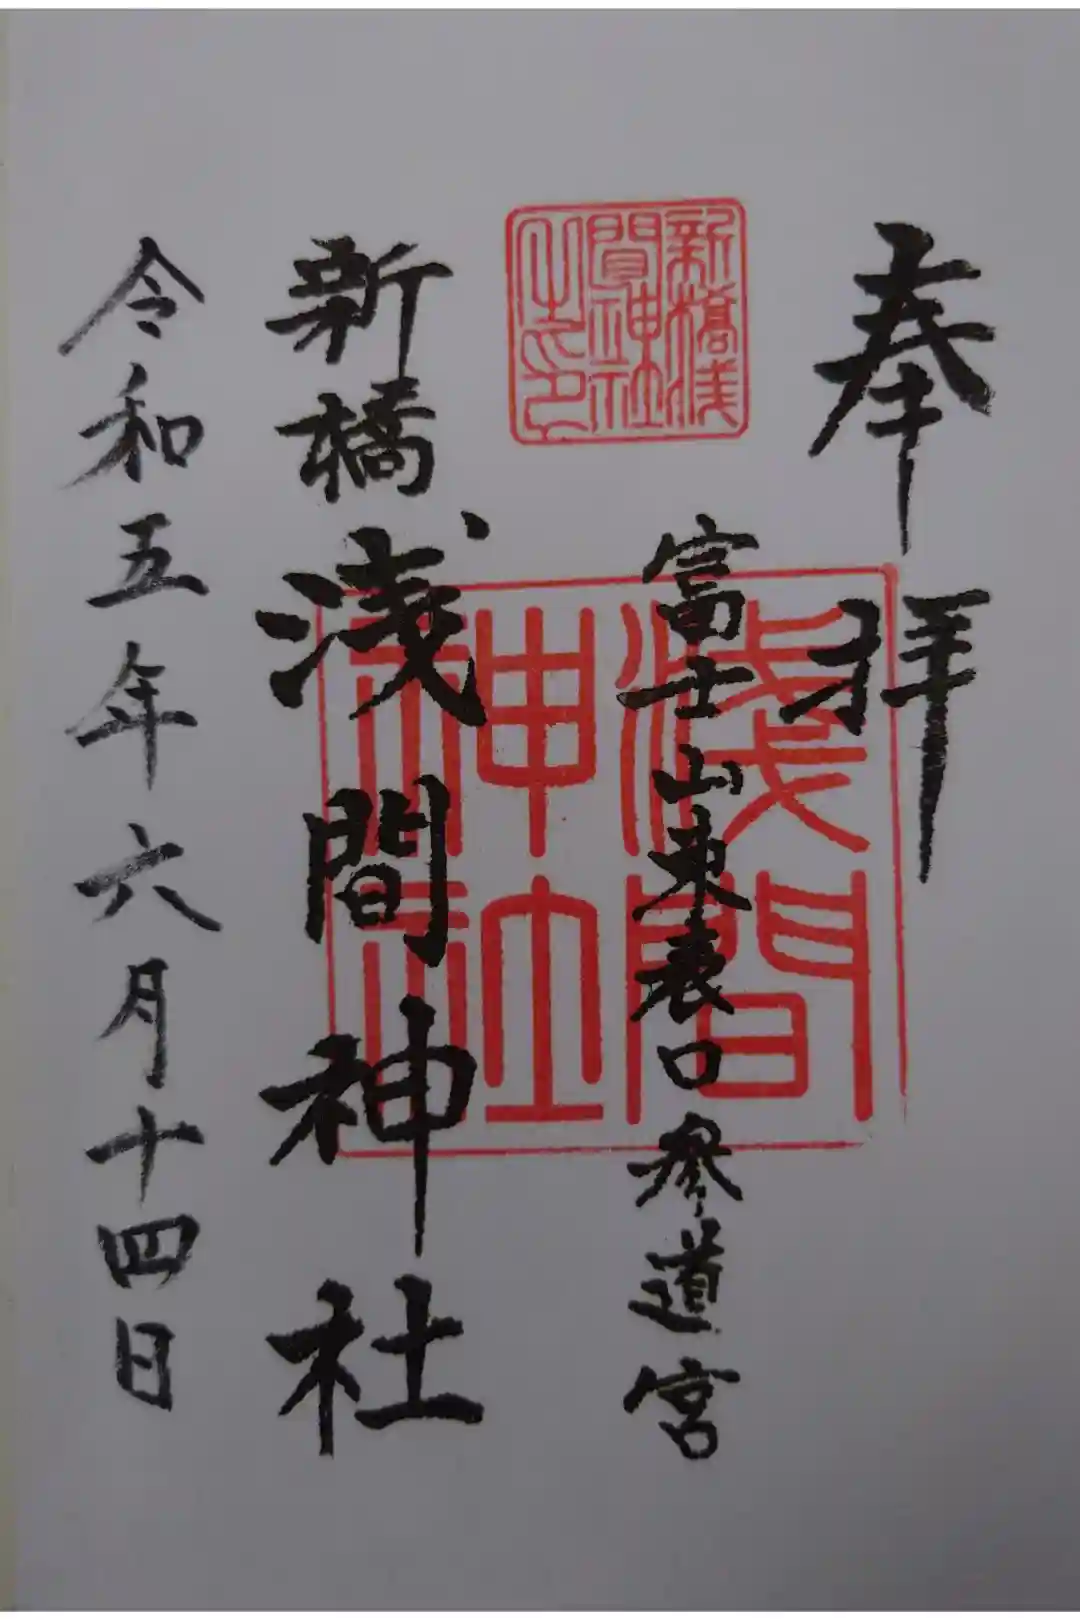 奉拝
富士山東表口参道宮
新橋浅
間神社
之印
浅間
神社
新橋浅間神社
令和五年六月十四日